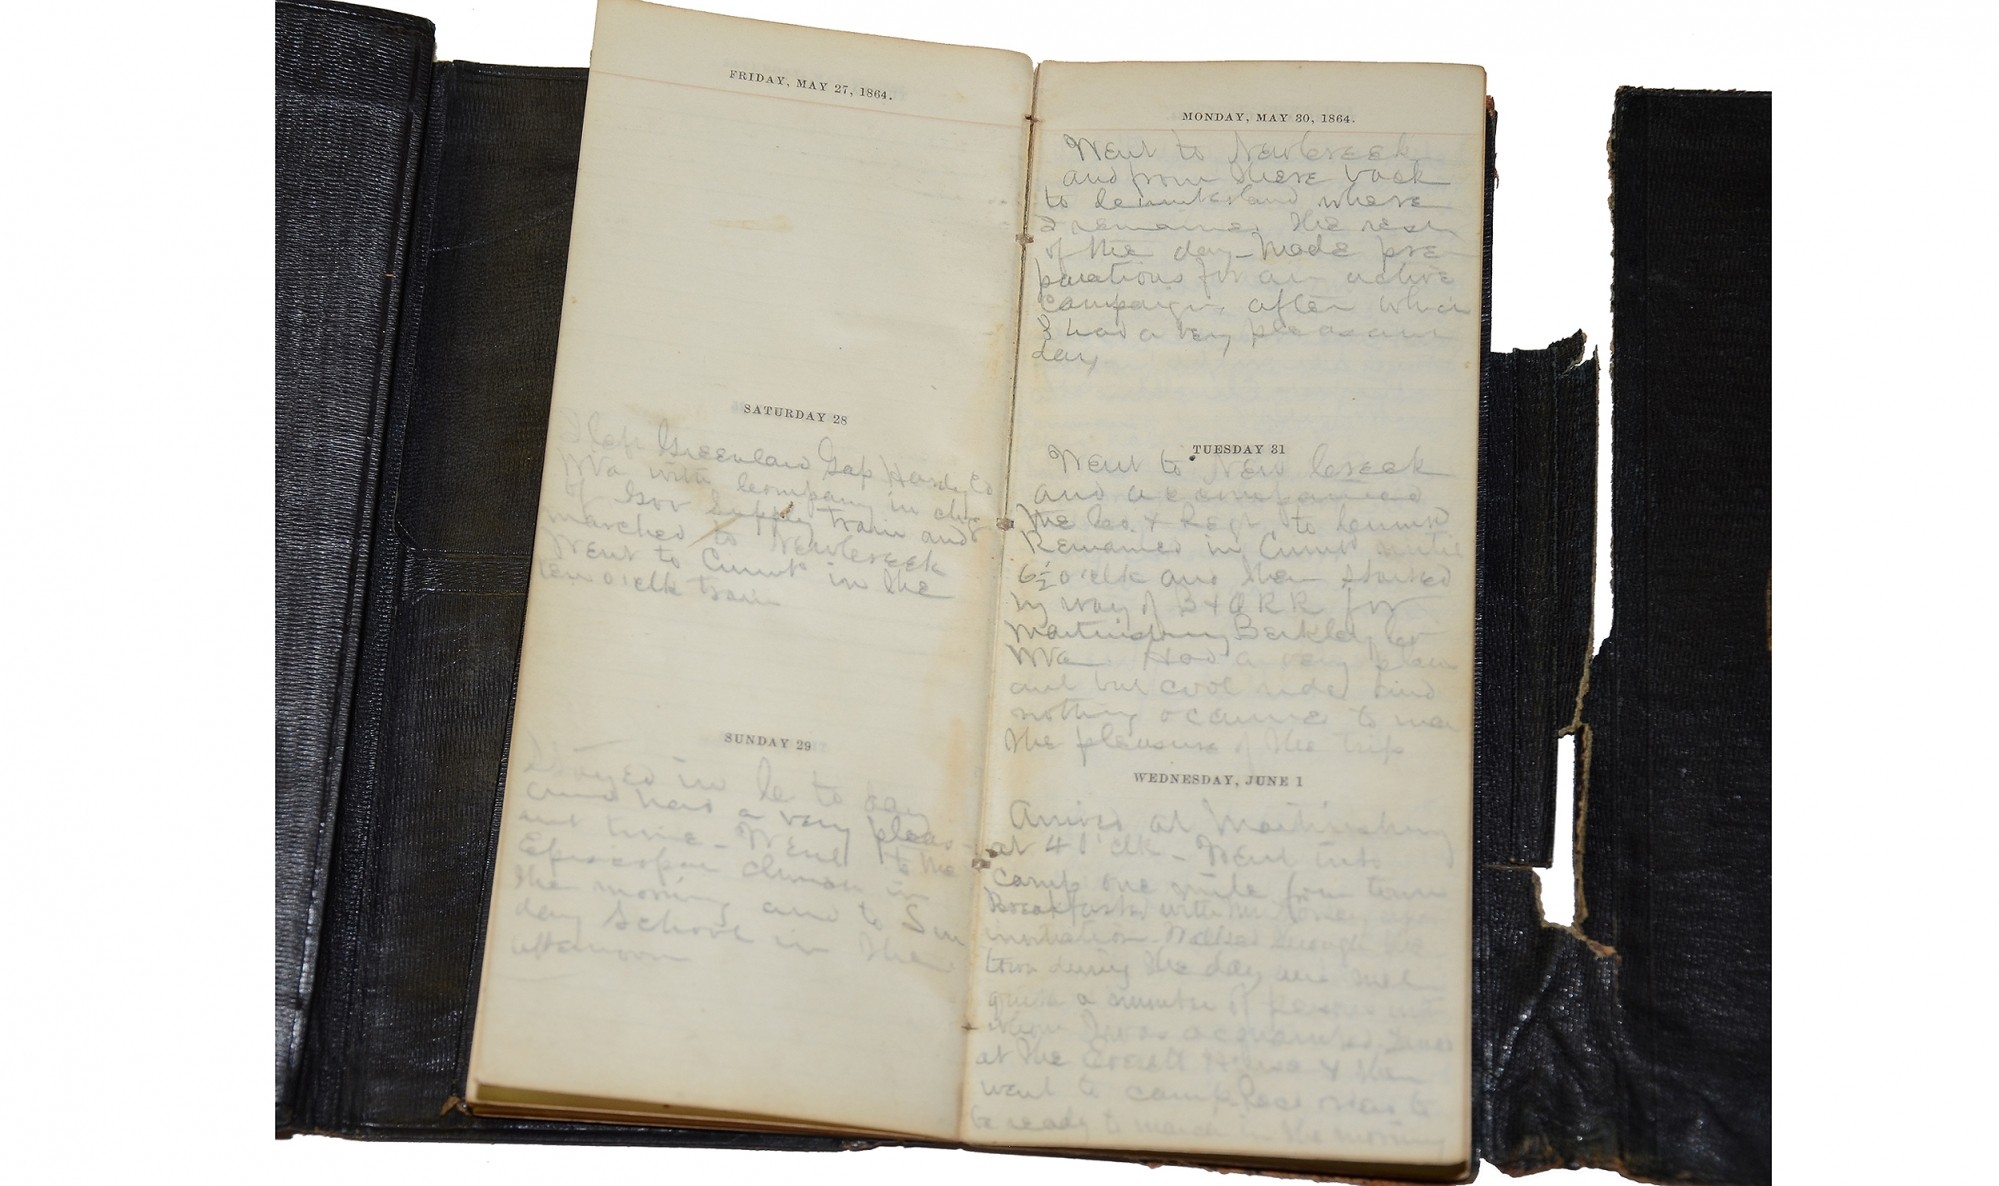 FRIDAY, MAY 27, 1864.
SATURDAY 28
I left Greenland Gap Hardy Co
WVa with Company in chge
of Gov Supply train and
marched to NewCreek
Went to Cumb in the
ten o'clk train
SUNDAY 29
Stayed in to day
and had a very pleas-
ant time - Went to the
Episcopal church in
the morning and to Sun
day School in the
afternoon
MONDAY, MAY 30, 1864.
Went to NewCreek
and from there back
to Cumberland where
I remained the rest
of the day - Made pre
parations for an active
Campaign after which
I had a very pleasant
day
TUESDAY 31
Went to New Creek
and accompanied
the Co. & Regt to Cumb
Remained in Cumb until
6½ o'clk and then started
by way of B & O R R for
Martinsburg Berkley Co
WVa Had a very pleas
ant but cool ride
nothing occurred to mar
the pleasure of the trip
WEDNESDAY, JUNE 1
Arrived at Martinsburg
at 4 O'clk - Went into
camp one mile from town
Breakfasted with Mr
invitation Walked through the
town during the day and met
quite a number of persons with
whom I was acquainted
at the Everett House & then
went to camp
to be ready to march in the morning